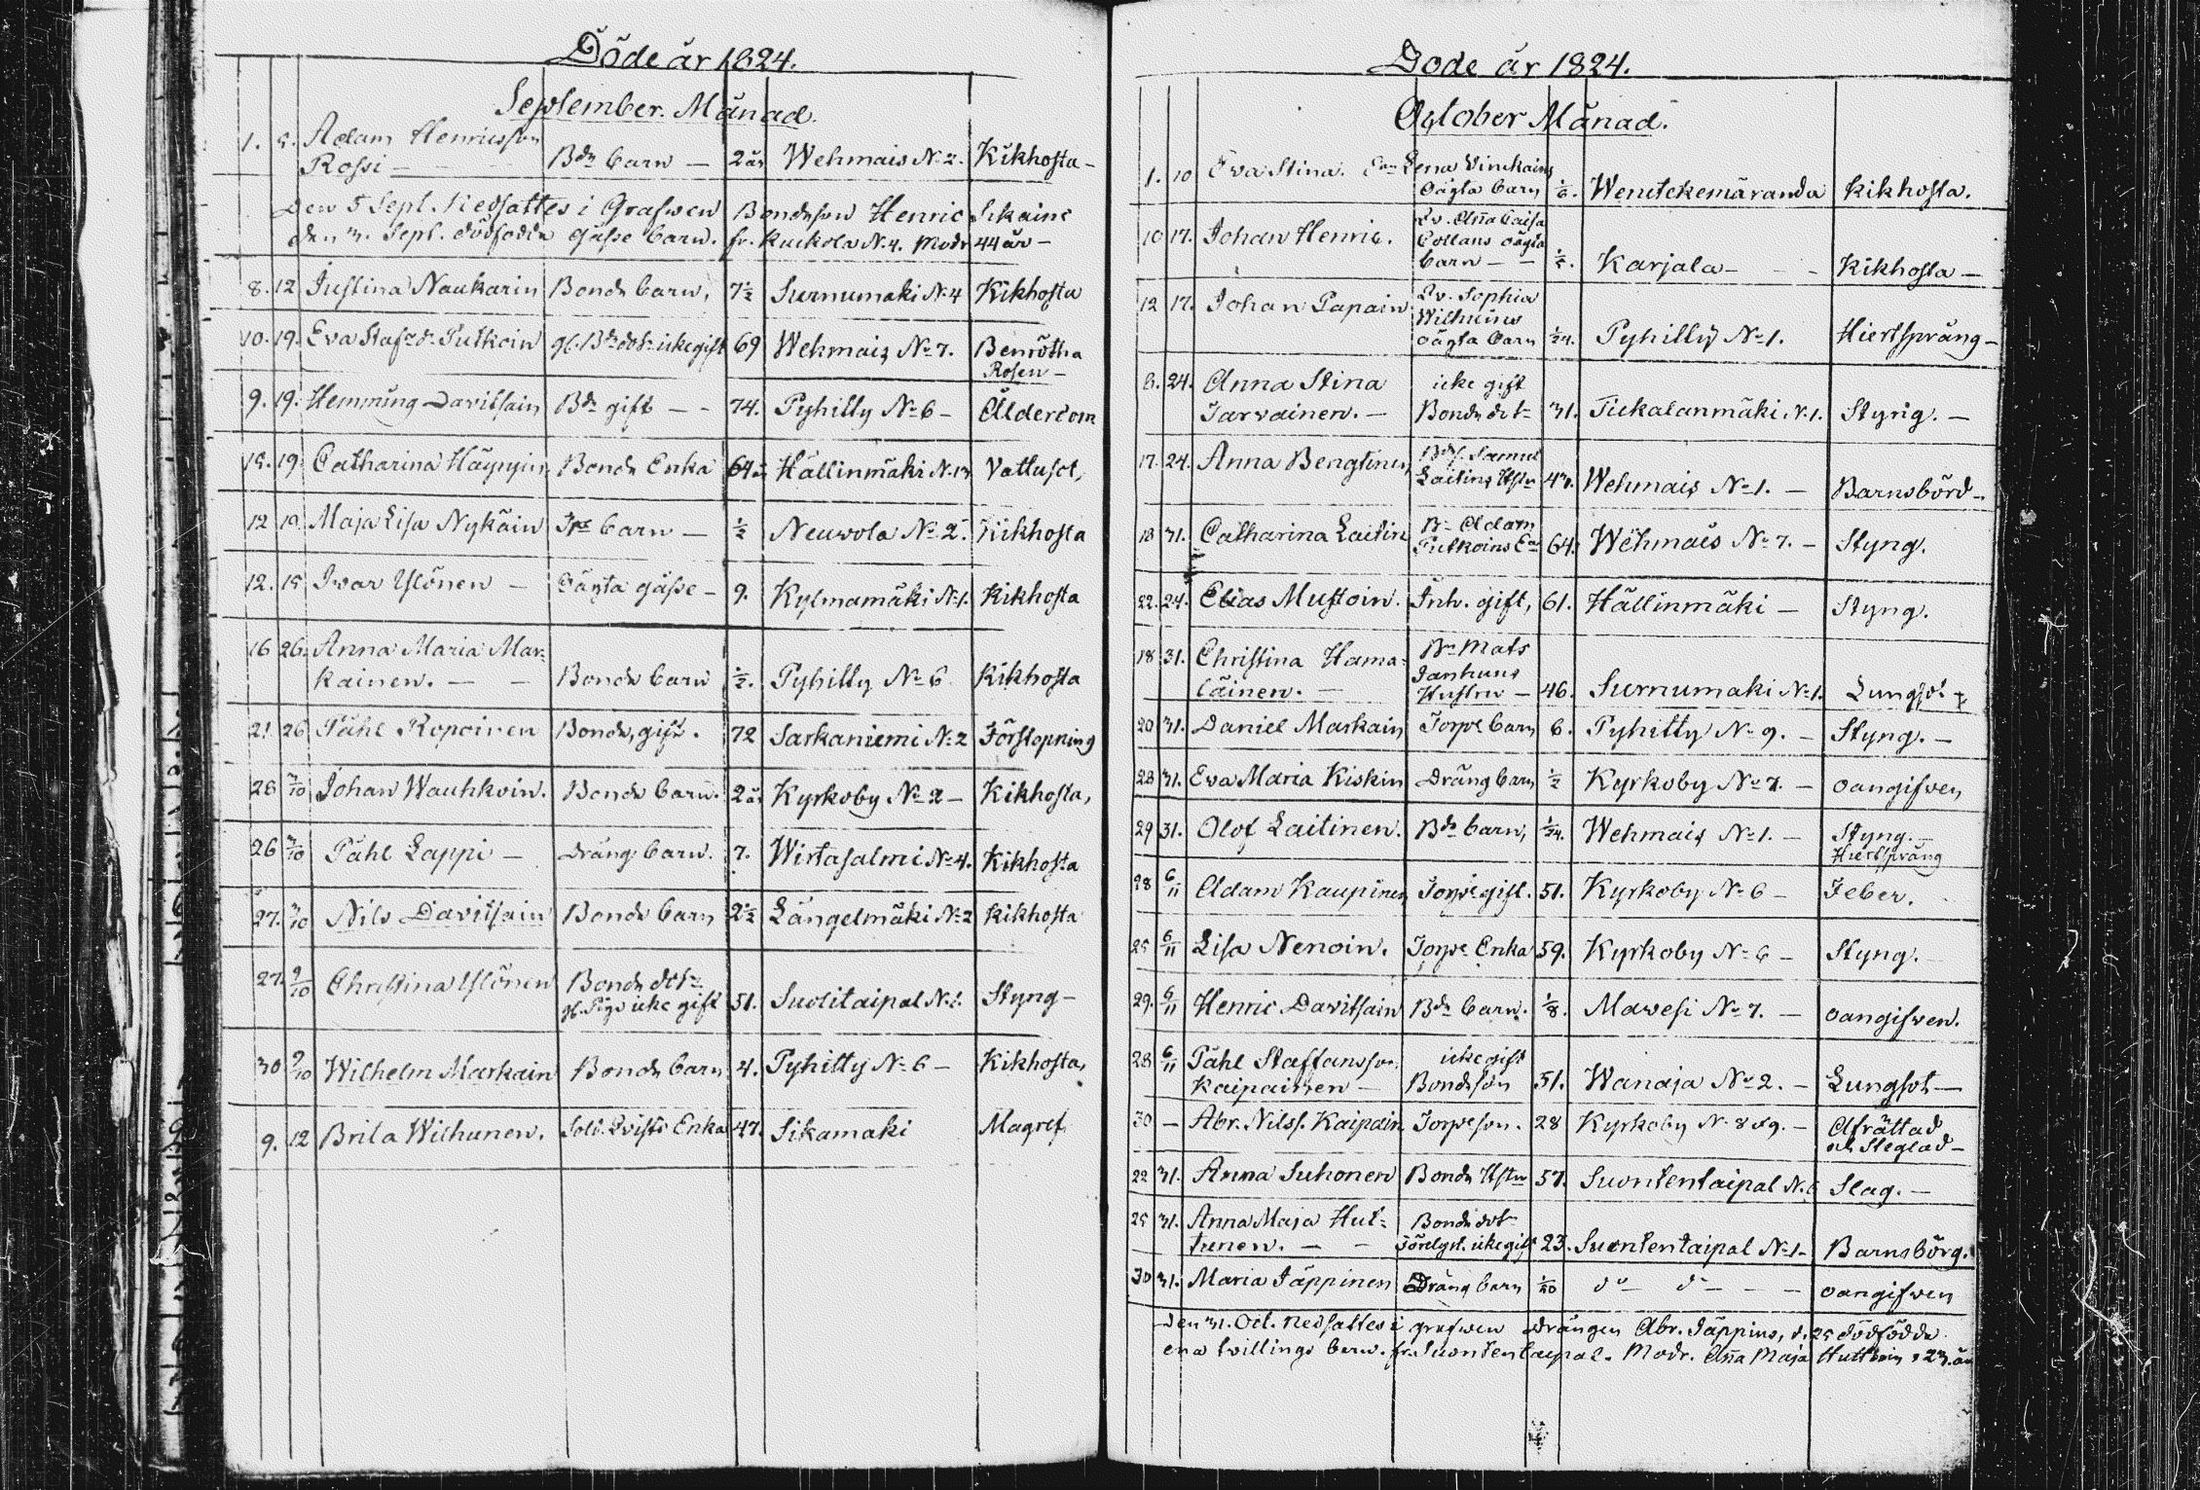 Döde år 1824.
September Månad.
1. 5. Adam Henricsson
Rossi — Bdn barn — 2 år Wehmais No 2. Kikhosta —
Den 5 Sept. Nedsattes i Grafwen Bondeson Henric Ikains
den 3. Sept. dödfödda gåsse barn. fr. Kuckola N. 4. Modr 44 år —
8. 12 Justina Naukarin Bonde barn, 7½ Surnumaki N. 4 Kikhosta
10. 19. Eva Stafsdr Putkoin gl. Bde dotr icke gift 69 Wehmais No 7. Benrötha
Rosen —
9. 19. Hemming Davitsain Bde gift — - 74. Pyhitty No 6 — Ålderdom
15. 19. Catharina Häyrynin Bonde Enka 64 år Hällinmäki N. 13 Vattusot,
12 19. Maja Lisa Nykäin Tpe barn — ½ Neuvola No 2. Kikhosta
12. 15 Ivar Ylönen — Oägta gåsse — 9. Kylmamäki No 1. Kikhosta
16 26. Anna Maria Mar-
kainen. — — Bonde barn ½. Pyhitty No 6 Kikhosta
21 26 Påhl Ropoinen Bonde, gift. 72 Sarkaniemi No 2 Förstopning
28 3/10 Johan Wauhkoin. Bonde barn. 2 år Kyrkoby No 2 — Kikhosta,
26 3/10 Påhl Lappi — Dräng barn. 7. Wirtasalmi No 4. Kikhosta
27. 3/10 Nils Davitsain Bonde barn 2½ Längelmäki No 2 Kikhosta
27. 9/10 Christina Ylönen Bonde dotr
gl. Piga icke gift 51. Suolitaipal N. 2. Styng —
30 9/10 Wilhelm Markain Bonde barn 4. Pyhitty No 6 — Kikhosta,
9. 12 Brita Wilhunen. Sold. Qvists Enka 47. Sikamaki Magref
Dode år 1824.
October Månad.
1. 10 Eva Stina. Lena Vinckains
Oägta barn 1/6. Wenetekemäranda Kikhosta.
10 17. Johan Henric. Qv. Anna Caisa
Collans oägta
barn — — 1/5. Karjala — - — Kikhosta —
12 17. Johan Papain Qv. Sophia
Wilhuins
oägta barn 1/24. Pyhitty No 1. Hiertsprång —
6. 24. Anna Stina icke gift
Tarvainen. — Bonde dotr 31. Tiekalanmäki N. 1. Styng. —
17. 24. Anna Bengtine, Bds. Samuel
Laitins Hstu 47. Wehmais No 1. — Barnsbörd —
18 31. Catharina Laitin Bn Adam
Putkoins Ea 64. Wehmais No 7. — Styng.
22. 24. Elias Mustoin. Inh. gift, 61. Hällinmäki — Styng.
18 31. Christina Hama- Bn Mats
läinen. — Janhuns
Hustru — 46. Surnumaki No 1. Lungsot
20 31. Daniel Markain Torpe barn 6. Pyhitty No 9. — Styng. —
28 31. Eva Maria Kiskin Dräng barn ½ Kyrkoby No 7. — oangifwen
29 31. Olof Laitinen. Bde barn, 1/24. Wehmais No 1. — Styng. —
Hiertsprång
28 6/11 Adam Kaupinen Torpe gift. 51. Kyrkoby No 6 — Feber.
25 6/11 Lisa Nenoin. Torpe Enka 59. Kyrkoby No 6 — Styng.
29. 6/11 Henric Davitsain Bde barn. 1/8. Mawesi No 7. — oangifwen.
28 6/11 Påhl Staffansson icke gift
Kaipainen — Bondeson 51. Wanaja No 2. — Lungsot —
30 — Abr. Nilss. Kaipain Torpeson. 28 Kyrkoby No 8 & 9. — Afrättad
och Steglad —
22 31. Anna Suhonen Bonde Hstu 57. Suontentaipal N. 6 Slag. —
25 31. Anna Maja Hut- Bonde dotr
tunen. — — Förelgd. icke gift 23. Suontentaipal No 1 — Barnsbörg.
30 31. Maria Jäppinen Dräng barn 1/20 do — do — - — oangifwen
Den 31. Oct. nedsattes i grafwen Drängen Abr. Jäppins, d. 25 dödfödda
ena twillings barn. fr. Suontentaipal. Modr. Aña Maja Huttuin, 23. år